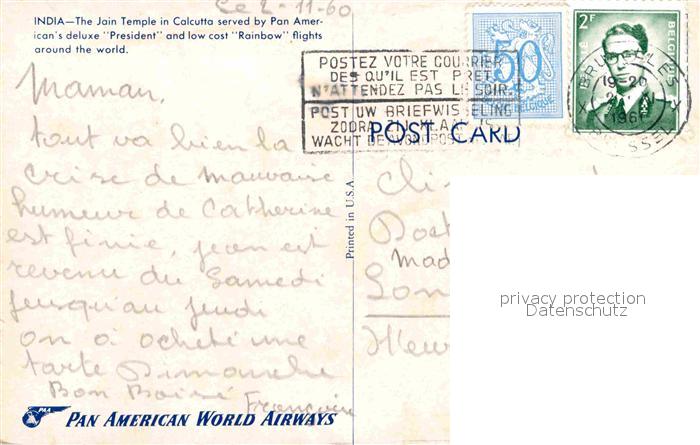 Ce 2-11-60
INDIA—The Jain Temple in Calcutta served by Pan Amer-
ican's deluxe "President" and low cost "Rainbow" flights
around the world.
Maman,
tout va bien la
crise de mauvaise
humeur de Catherine
est finie, jean est
revenu du Samedi
jusqu'au jeudi
on a acheté une
tarte Dimanche
Bon Baisé
Françoise
PAA
PAN AMERICAN WORLD AIRWAYS
Printed in U.S.A
POSTEZ VOTRE COURRIER
DES QU'IL EST PRET
N'ATTENDEZ PAS LE SOIR.
POST UW BRIEFWISSELING
WACHT DE AVONDPOST
POST CARD
50
BELGIQUE
2F
BELGIE
BRUXELLES
19-20
196
BRUSSEL
X
Cli
Post
Mad
Lon
Heur
privacy protection
Datenschutz